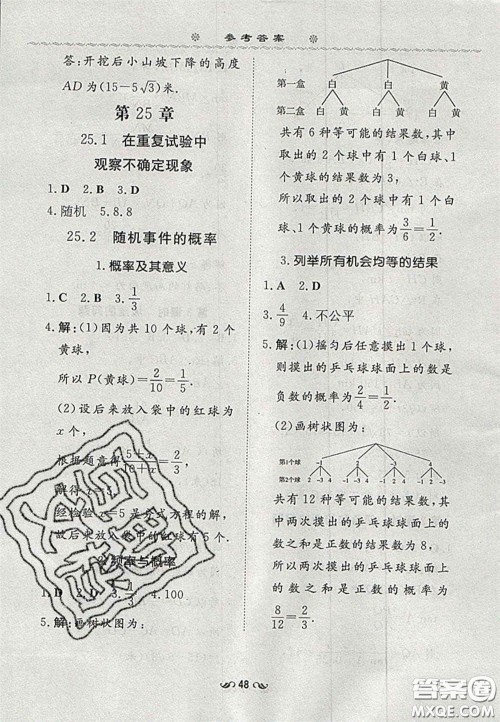 参考答案
答:开挖后小山坡下降的高度
AD为(15-5√3)米.
第25章
25.1 在重复试验中
观察不确定现象
1.D 2.B 3.D
4.随机 5.8.8
25.2 随机事件的概率
1.概率及其意义
1.C 2.B 3.1/3
4.解:(1)因为共10个球,有2个
黄球,
所以P(黄球)=2/10=1/5.
(2)设后来放入袋中的红球为
x个,
根据题意得(5+x)/(10+x)=2/3
解得x=5.
经检验x=5是分式方程的解.
故后来放入袋中的红球有5个.
频率与概率
1.D 3.1 4.100
5.解:画树状图为:
第一盒 白 白 黄
第二盒 白 黄 白 黄 白 黄
共有6种等可能的结果数,其
中取出的2个球中有1个白球、
1个黄球的结果数为3,
所以取出的2个球中有1个白
球、1个黄球的概率为3/6=1/2.
3.列举所有机会均等的结果
1.D 2.D
3.4/9 4.不公平
5.解:(1)摇匀后任意摸出1个球,
则摸出的乒乓球球面上的数是
负数的概率为2/4=1/2.
(2)画树状图为:
第1个球
第2个球
共有12种等可能的结果数,其
中两次摸出的乒乓球球面上的
数之和是正数的结果数为8,
所以两次摸出的乒乓球球面上
的数之和是正数的概率为
8/12=2/3.
48
答案圈
MXQE.COM